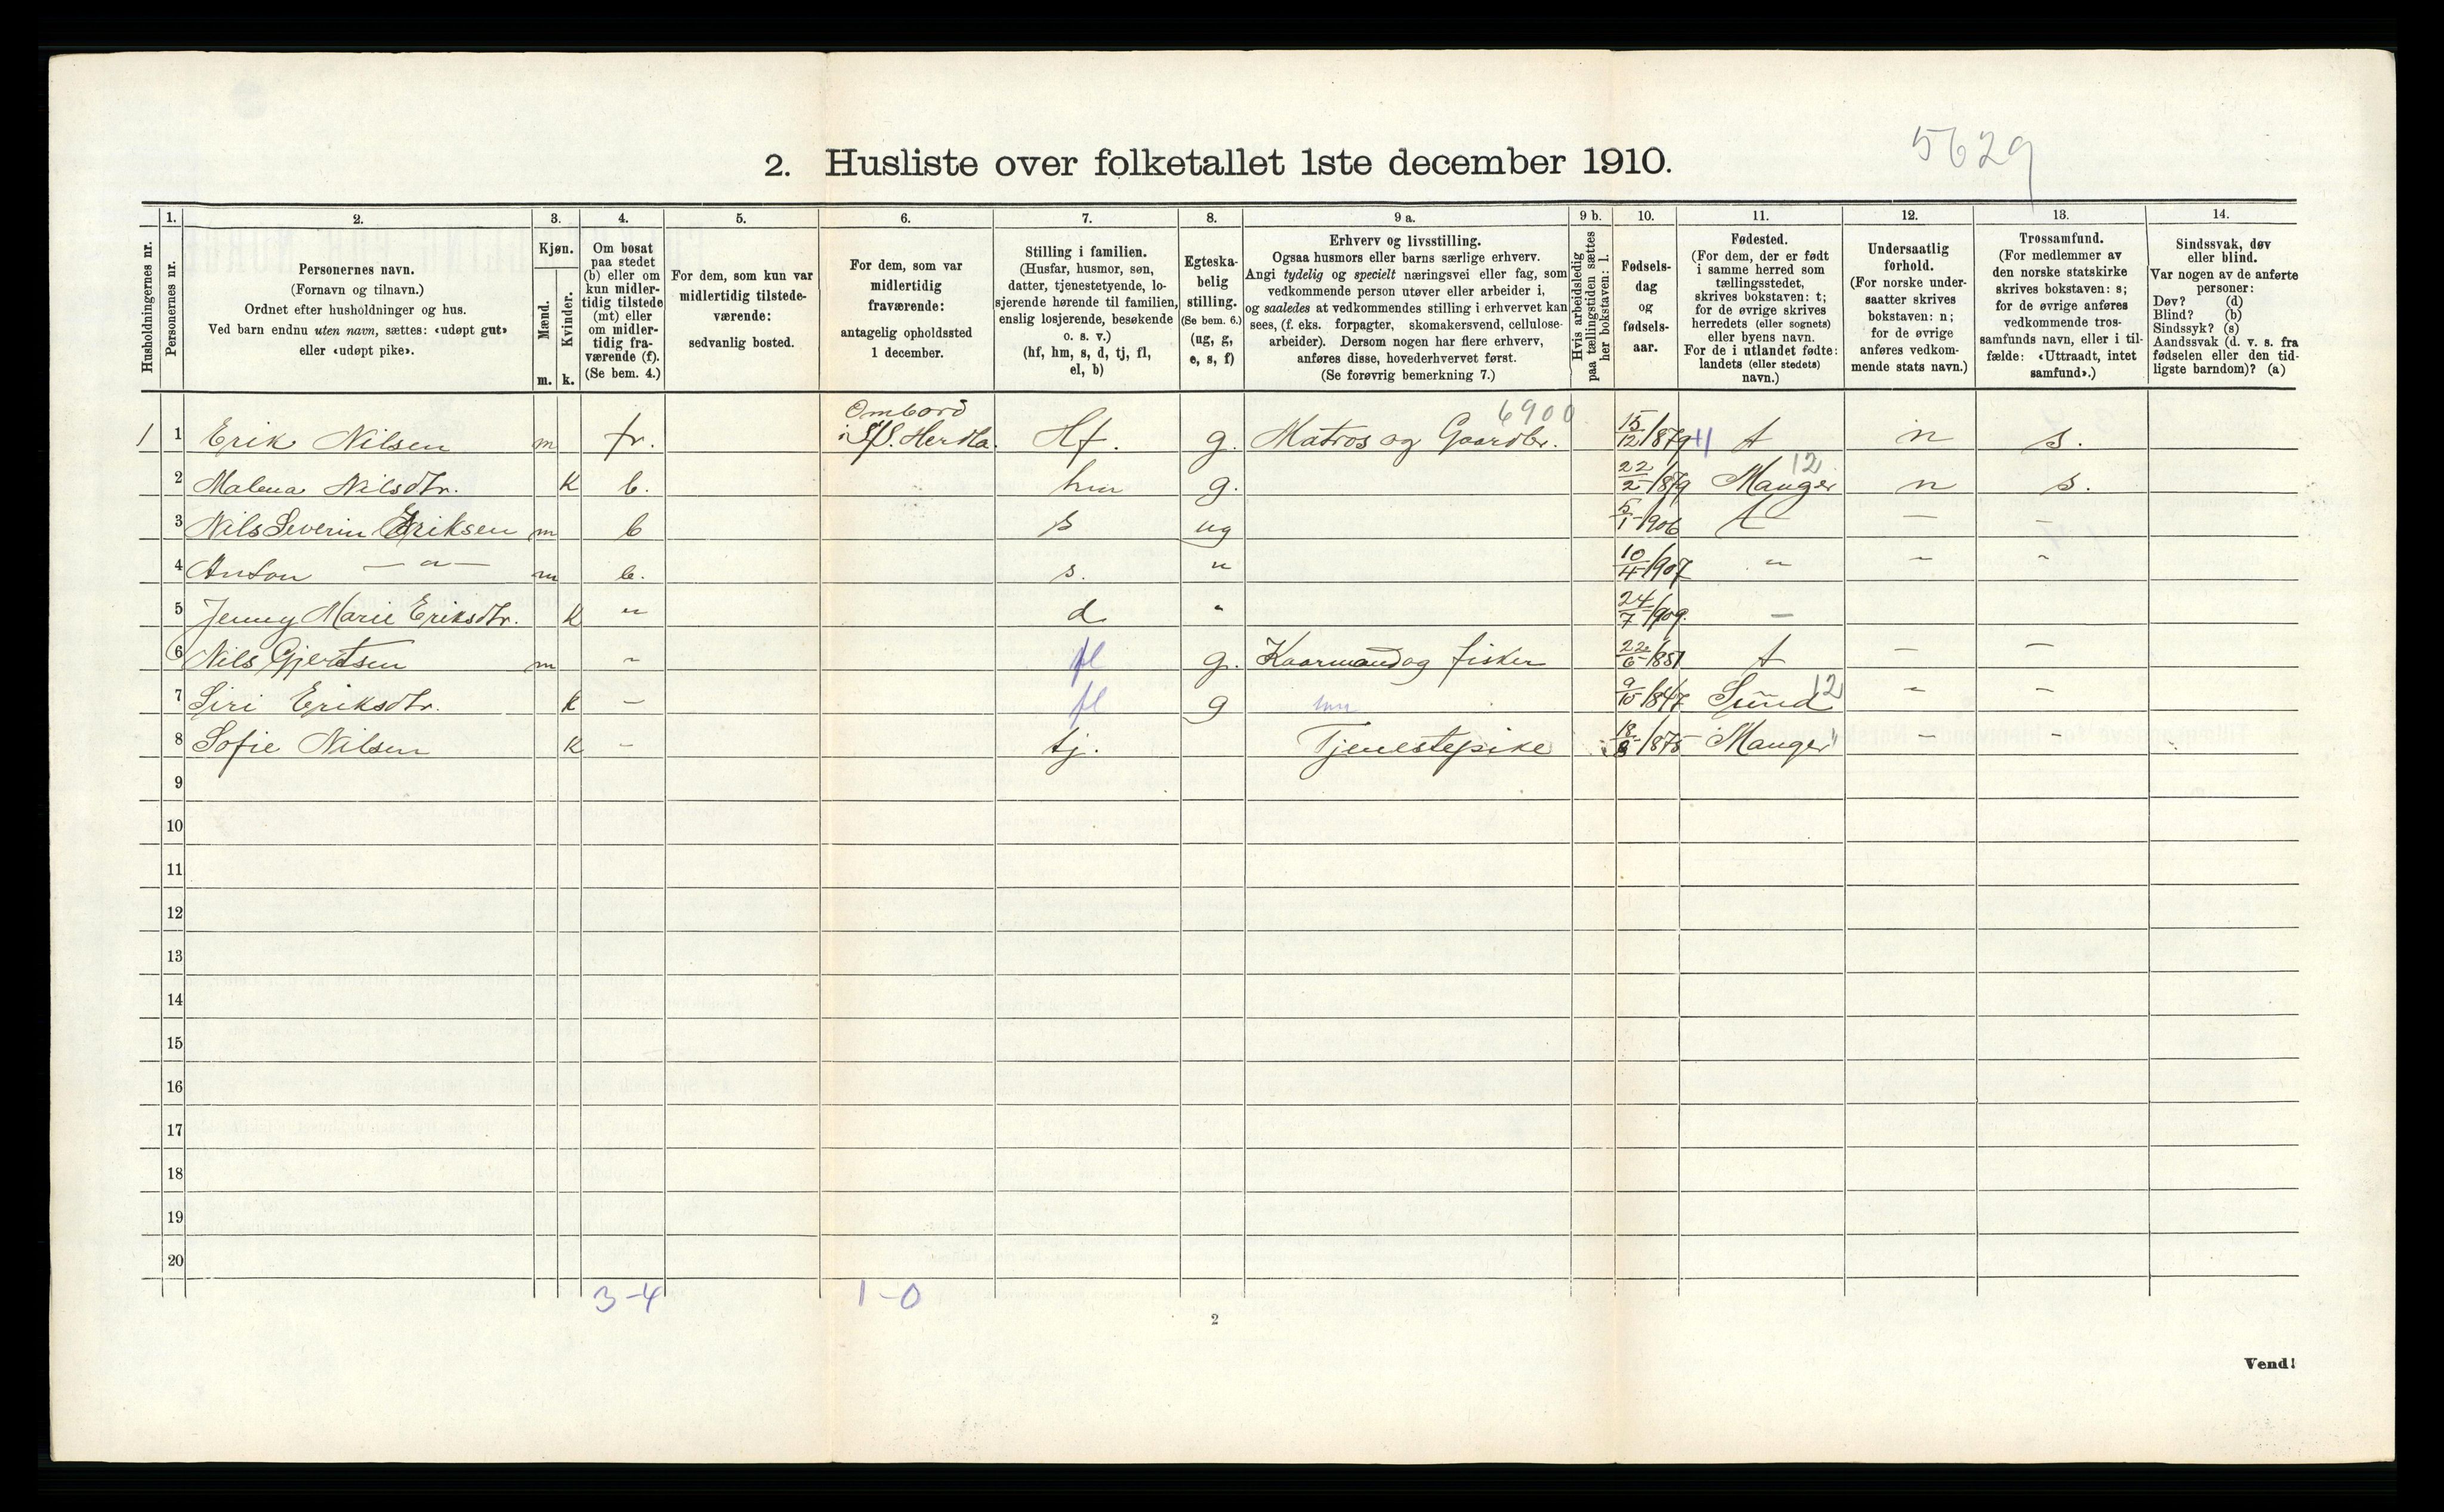 5629
2. Husliste over folketallet 1ste december 1910.
Husholdningernes nr.
1. Personernes nr.
2. Personernes navn. (Fornavn og tilnavn.) Ordnet efter husholdninger og hus. Ved barn endnu uten navn, sættes: «udøpt gut» eller «udøpt pike».
3. Kjøn. Mænd. m. Kvinder. k.
4. Om bosat paa stedet (b) eller om kun midler-tidig tilstede (mt) eller om midler-tidig fra-værende (f). (Se bem. 4.)
5. For dem, som kun var midlertidig tilstede-værende: sedvanlig bosted.
6. For dem, som var midlertidig fraværende: antagelig opholdssted 1 december.
7. Stilling i familien. (Husfar, husmor, søn, datter, tjenestetyende, lo-sjerende hørende til familien, enslig losjerende, besøkende o. s. v.) (hf, hm, s, d, tj, fl, el, b)
8. Egteska-belig stilling. (Se bem. 6.) (ug, g, e, s, f)
9 a. Erhverv og livsstilling. Ogsaa husmors eller barns særlige erhverv. Angi tydelig og specielt næringsvei eller fag, som vedkommende person utøver eller arbeider i, og saaledes at vedkommendes stilling i erhvervet kan sees, (f. eks. forpagter, skomakersvend, cellulose-arbeider). Dersom nogen har flere erhverv, anføres disse, hovederhvervet først. (Se forøvrig bemerkning 7.)
9 b. Hvis arbeidsledig paa tællingstiden sættes her bokstaven: l.
10. Fødsels-dag og fødsels-aar.
11. Fødested. (For dem, der er født i samme herred som tællingsstedet, skrives bokstaven: t; for de øvrige skrives herredets (eller sognets) eller byens navn. For de i utlandet fødte: landets (eller stedets) navn.)
12. Undersaatlig forhold. (For norske under-saatter skrives bokstaven: n; for de øvrige anføres vedkom-mende stats navn.)
13. Trossamfund. (For medlemmer av den norske statskirke skrives bokstaven: s; for de øvrige anføres vedkommende tros-samfunds navn, eller i til-fælde: «Uttraadt, intet samfund».)
14. Sindssvak, døv eller blind. Var nogen av de anførte personer: Døv? (d) Blind? (b) Sindssyk? (s) Aandssvak (d. v. s. fra fødselen eller den tid-ligste barndom)? (a)
6900
1 1 Erik Nilsen m fr. Ombord i S/S. Herdla. Hf. g. Matros og Gaardbr. 15/12/1879 t n s.
2 Malena Nilsdtr. K b. hm g. 22/2-1879 Manger 12 n s.
3 Nils Severin Eriksen m b s ug 5/1-1906 t — —
4 Anton — " — m b. s. " 10/4-1907 " — "
5 Jenny Marie Eriksdtr. K " d " 24/7-1909. —
6 Nils Gjertsen m - fl g. Kaarmand og fisker 22/6-1851 t — —
7 Siri Eriksdtr. k — fl g hm 9/10-1847 Sund 12 — —
8 Sofie Nilsen K - tj. Tjenestepike 1875 Manger " — —
9
10
11
12
13
14
15
16
17
18
19
20
3-4 1-0
2
Vend!